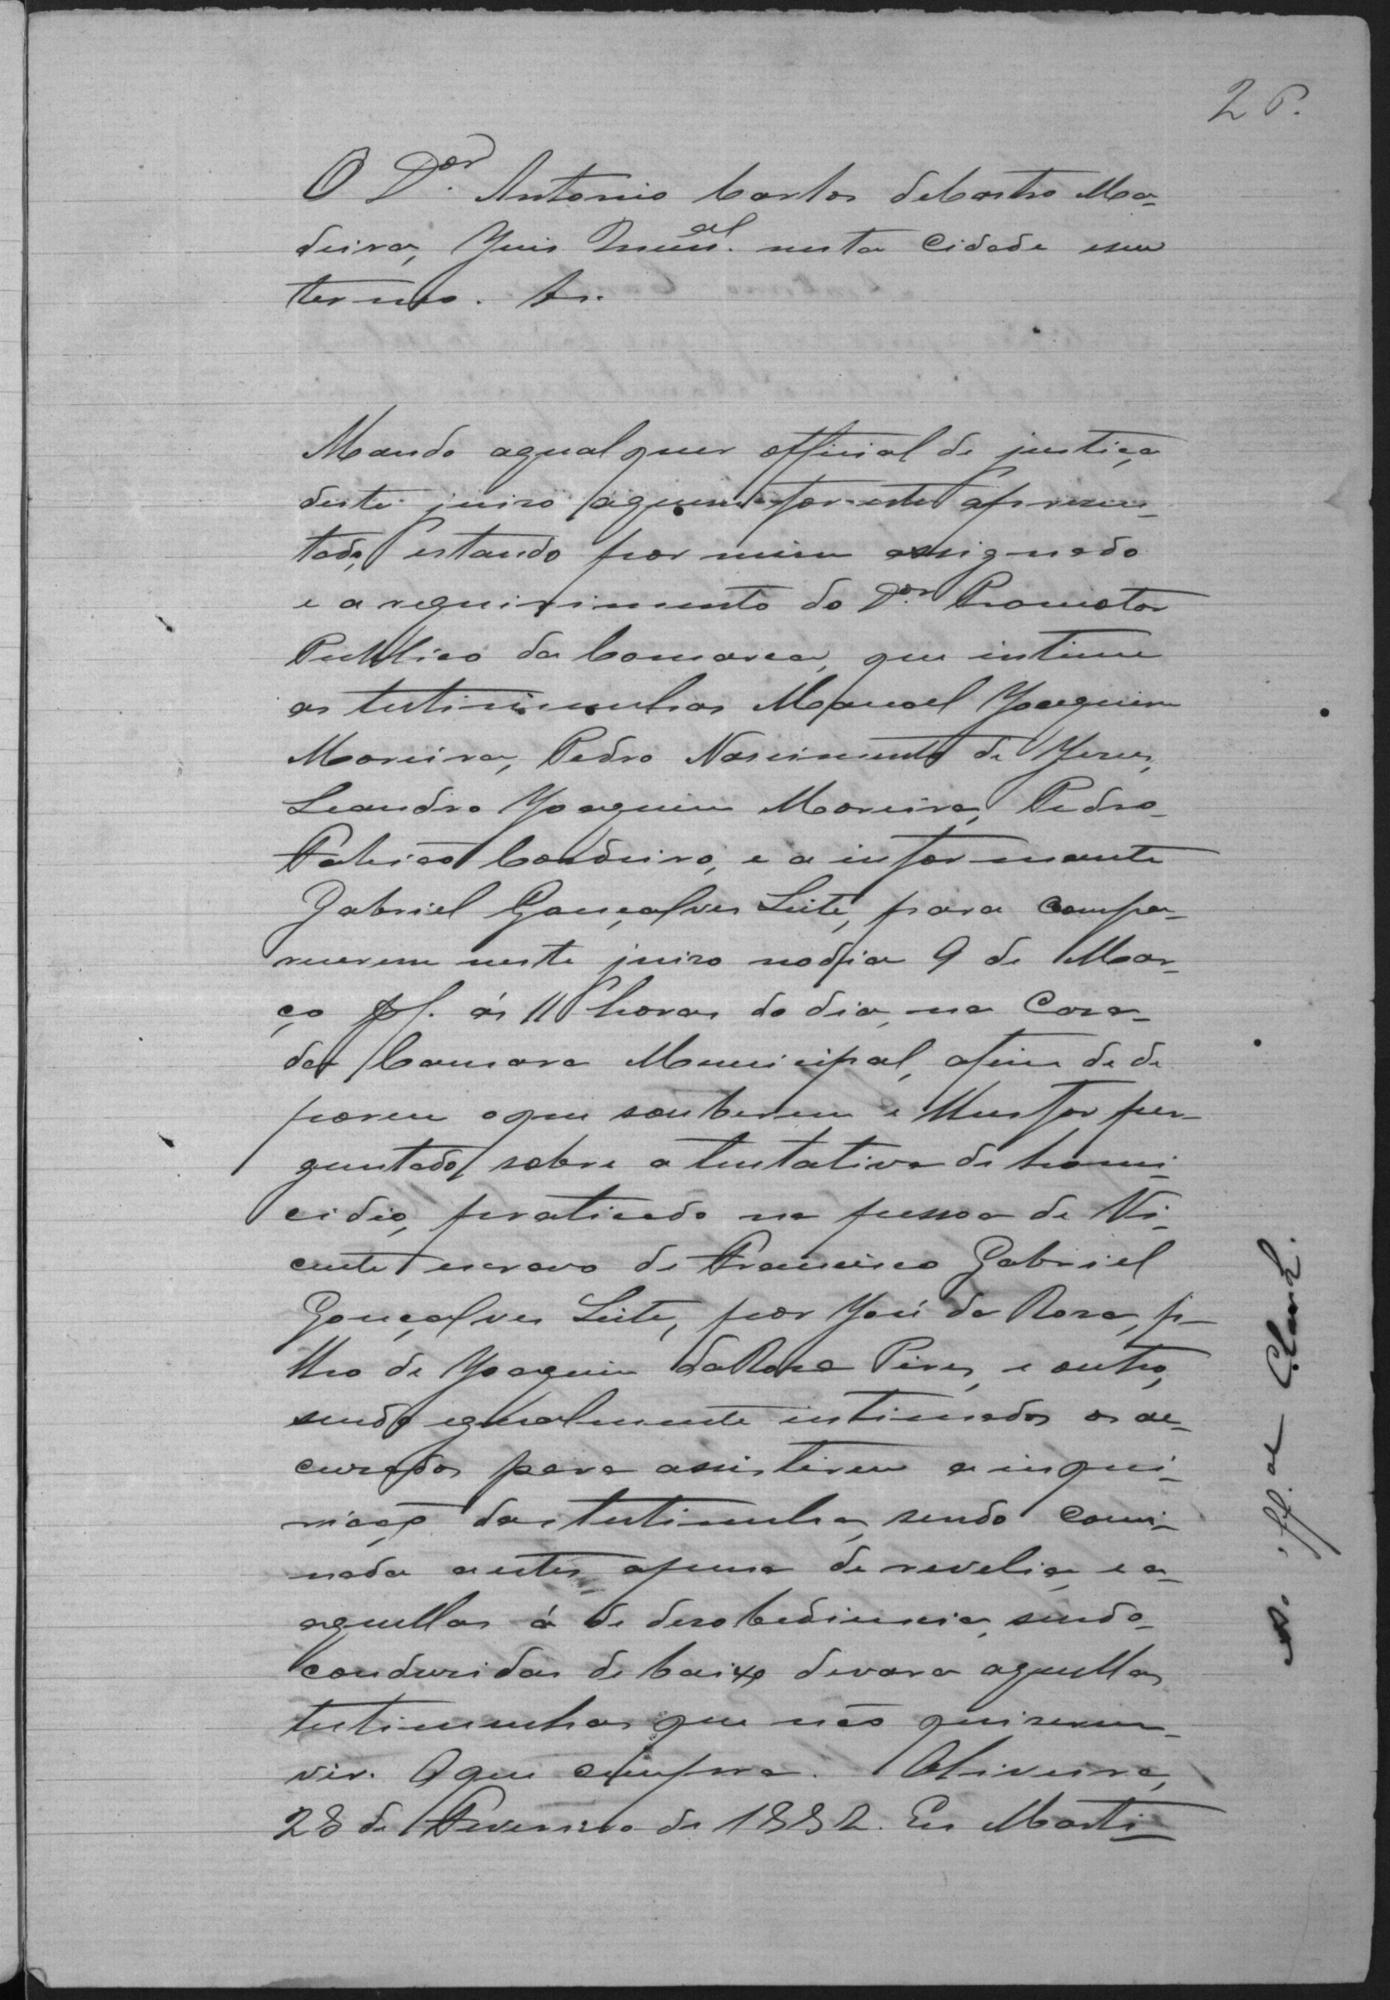 26.
O D.or Antonio Carlos de Castro Ma-
deira, Juis Mun.al nesta Cidade e seu
termo. &.
Mando aqualquer official de justiça
deste juiso aquem for este apresen-
tado, estando por mim assignado
e a requirimento do D.or Promotor
Publico da Comarca, que intime
as testimunhas Manoel Joaquim
Moreira, Pedro Nascimento de Jesus,
Leandro Joaquim Moreira, Pedro
Fabião Cordeiro, e a informante
Gabriel Gonçalves Leite, para compa-
recerem neste juiso nodia 9 de Mar-
ço pf. ás 11 horas do dia, na Casa
da Camara Municipal, afim de de
porem oque souberem e lhes for per-
guntado, sobre a tentativa de homi-
cidio, praticado na pessoa de Vi-
cente escravo de Francisco Gabriel
Gonçalves Leite, por José da Rosa, fi-
lho de Joaquim daRosa Pires, e outro,
sendo egualmente intimados os ac-
cusados para assistirem a inqui-
rição das testimunhas, sendo comi-
nada a estes, apena de revelia, e a-
aquellas á de desobediencia, sendo
conduzidas debaixo devara aquellas
testimunhas que não quiserem
vir. Oque cumpra. Oliveira,
28 de Fevereiro de 1882. Eu Marti-